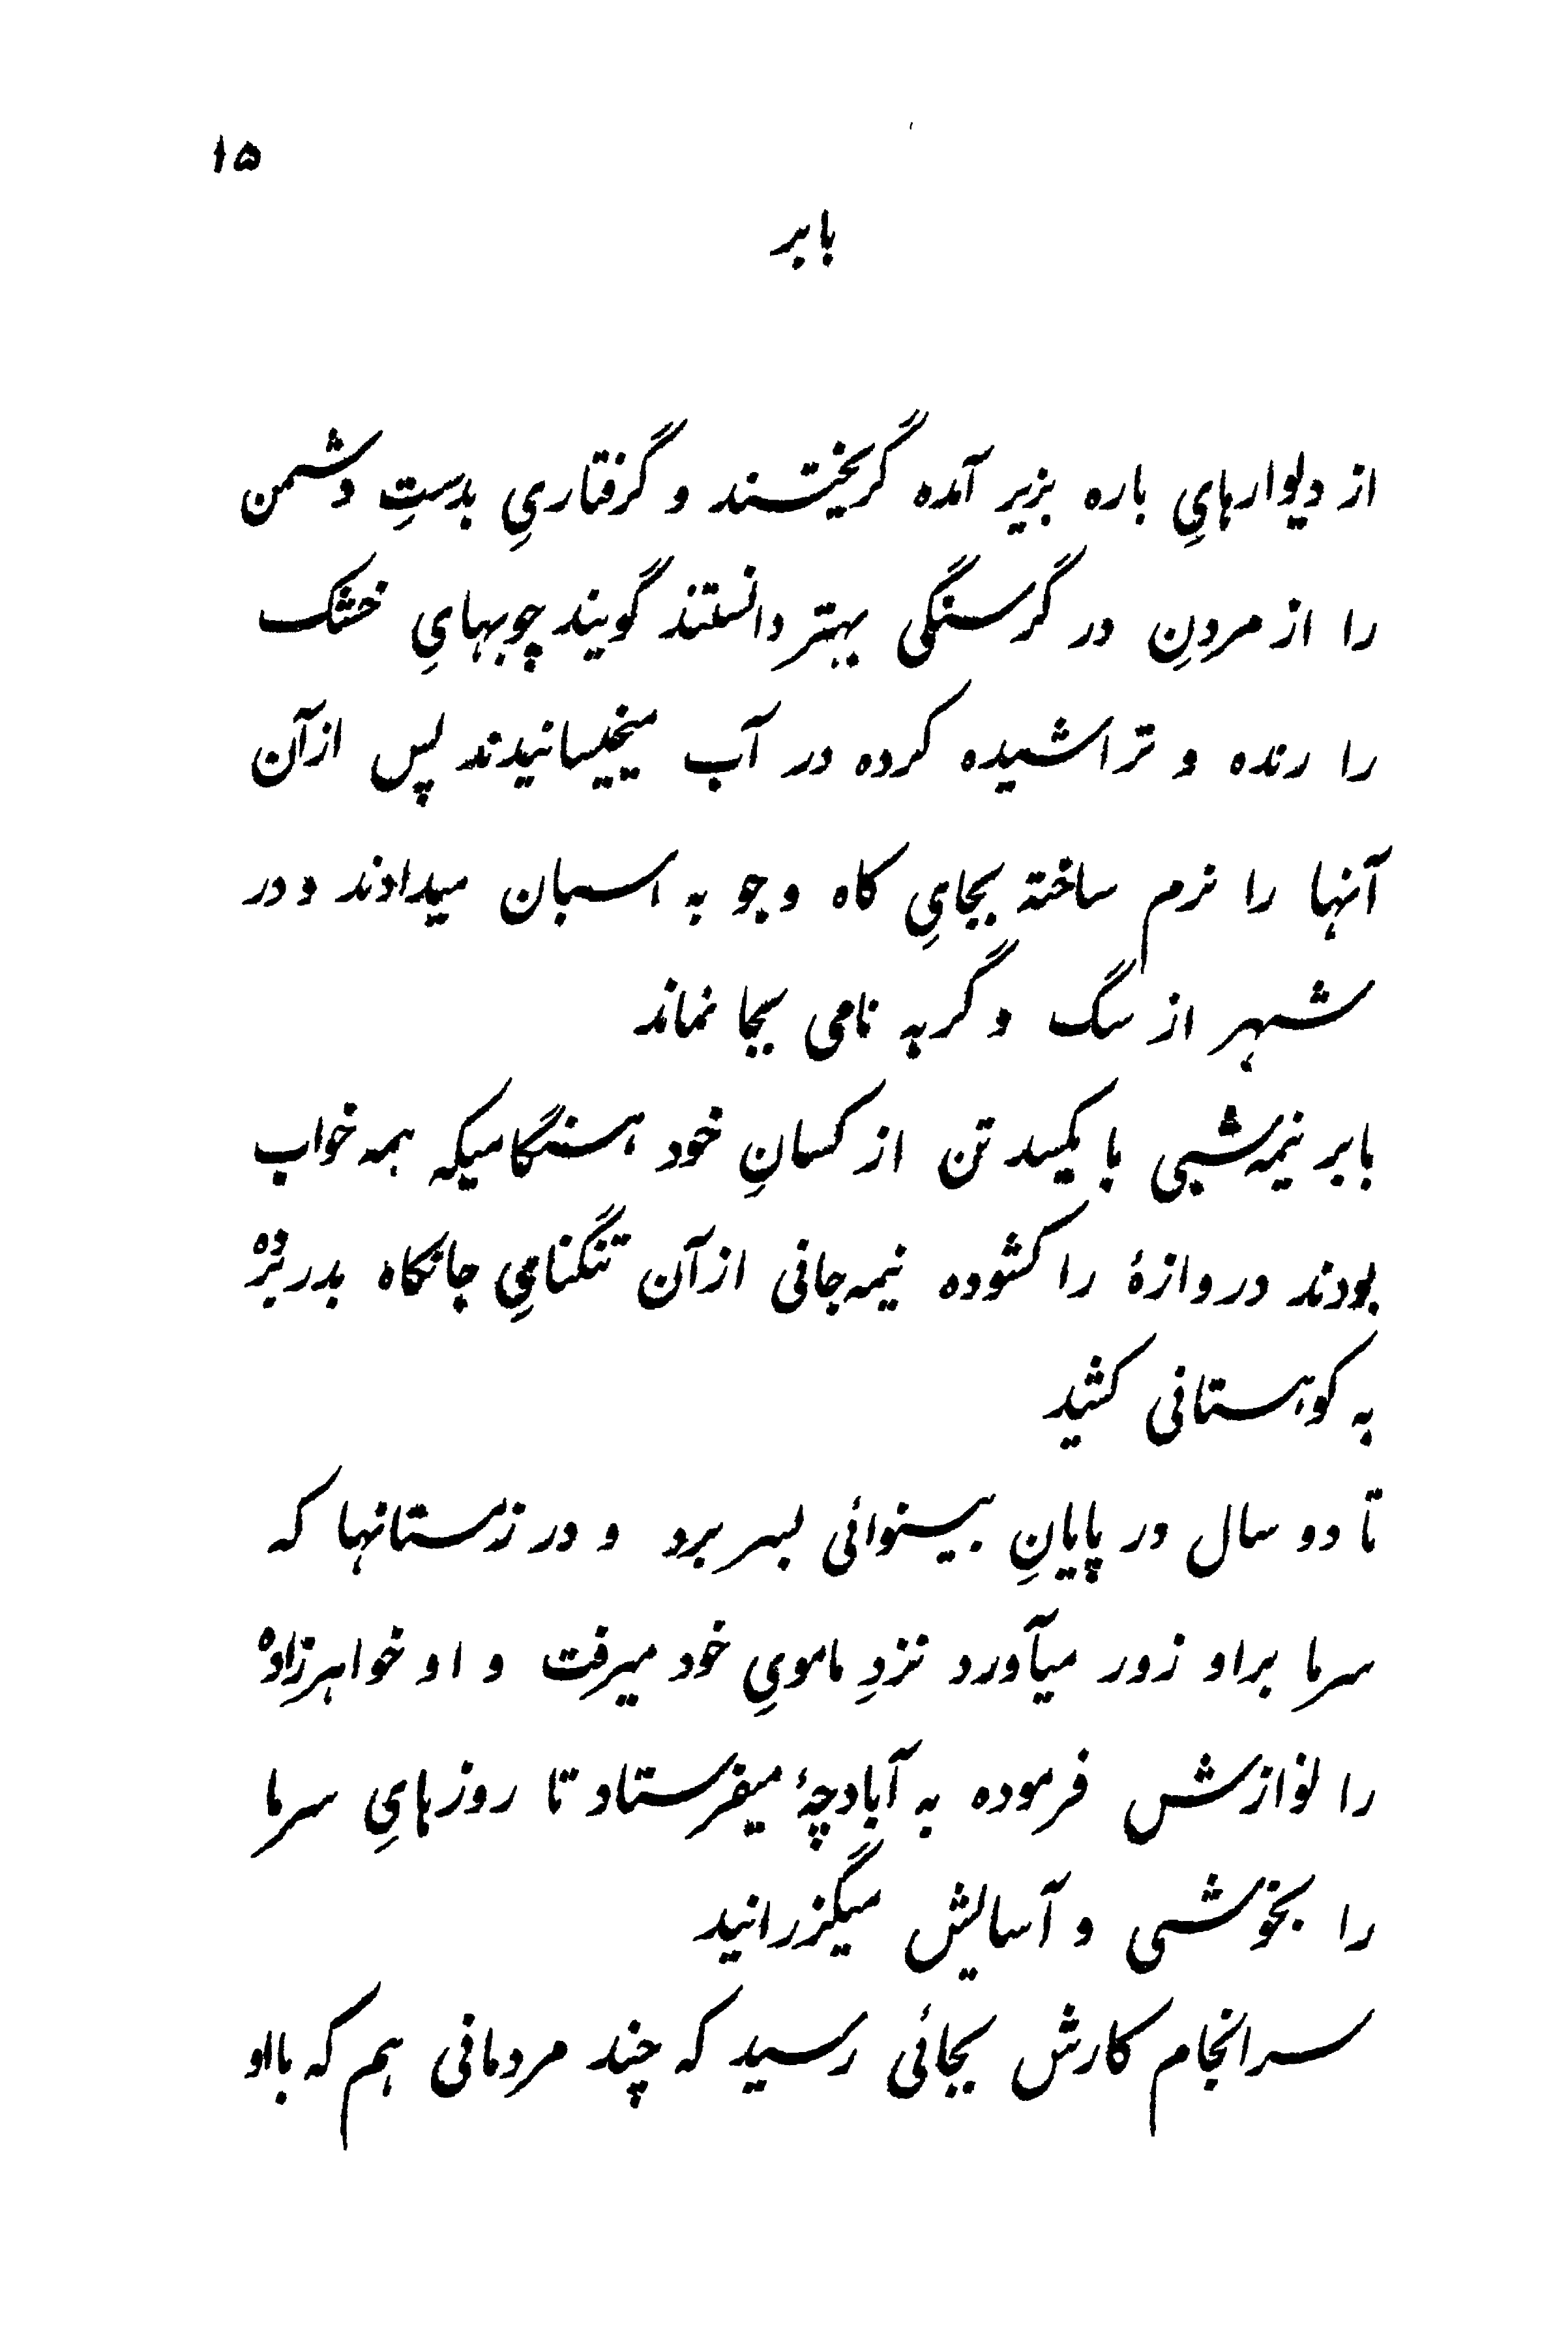 ۱۵
بابر
از دیوارهایِ باره بزیر آمده گریختند و گرفتاریِ بدستِ دشمن
را از مردنِ در گرسنگی بهتر دانستند گویند چوبهایِ خشک
را رنده و تراشیده کرده در آب میخیسانیدند پس ازآن
آنها را نرم ساخته بجایِ کاه و جو به اسبان میدادند و در
شهر از سگ و گربه نامی بجا نماند
بابر نیمه‌شبی با یکصد تن از کسانِ خود هنگامیکه همه خواب
بودند دروازهٔ را کشوده نیمه جانی ازآن تنگنایِ جانکاه بدر برده
به کوهستانی کشید
تا دو سال در پایانِ بینوائی بسر برد و در زمستانها که
سرما براو زور میآورد نزدِ ماموی‌ِ خود میرفت و او خواهرزاده
را نوازش فرموده به آبادچهٔ میفرستاد تا روزهایِ سرما
را بخوشی و آسایش میگزرانید
سرانجام کارش بجائی رسید که چند مردمانی هم که بااو